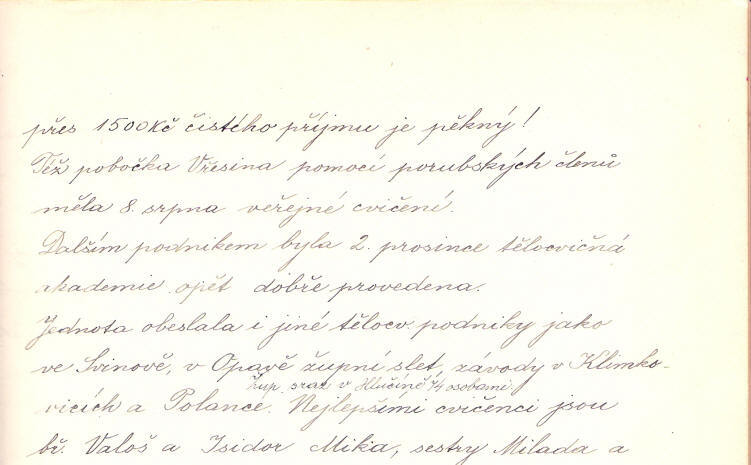 přes 1500Kč čistého příjmu je pěkný!
Též pobočka Vřesina pomocí porubských členů
měla 8. srpna veřejné cvičení.
Dalším podnikem byla 2. prosince tělocvičná
akademie opět dobře provedena.
Jednota obeslala i jiné tělocv. podniky jako
ve Svinově, v Opavě župní slet, závody v Klimko-
Žup. sraz v Hlučíně 74 osobami.
vicích a Polance. Nejlepšími cvičenci jsou
br. Valoš a Isidor Mika, sestry Milada a